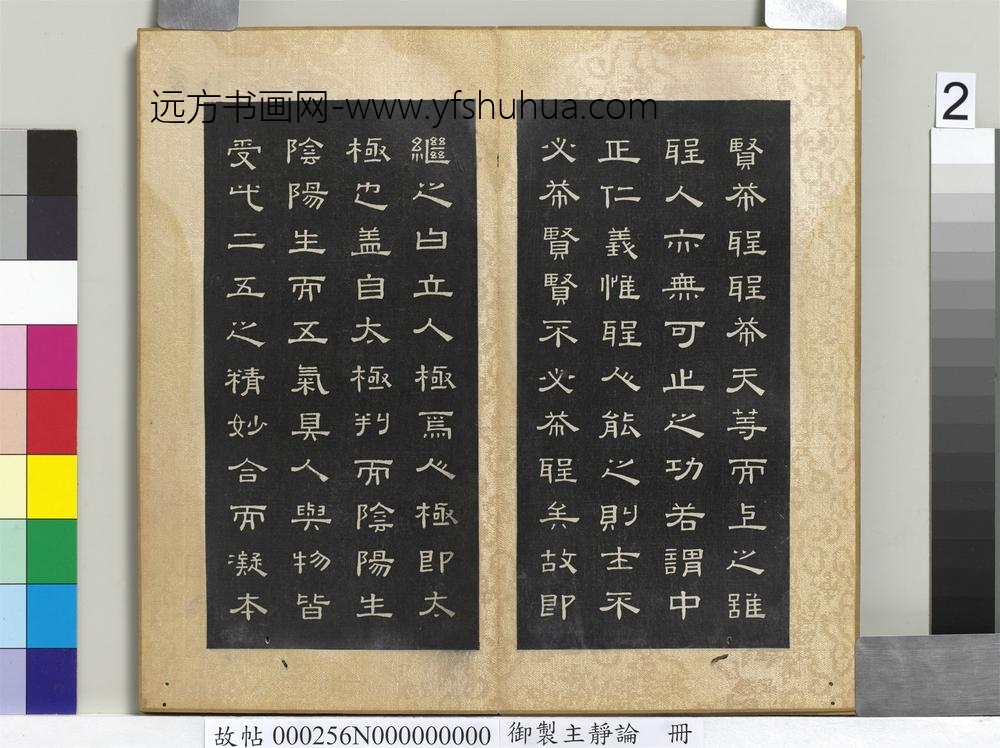 远方书画网-www.yfshuhua.com
2
賢希聖聖希天等而上之雖
聖人亦無可止之功若謂中
正仁義惟聖人能之則士不
必希賢賢不必希聖矣故即
繼之曰立人極焉人極即太
極也蓋自太極判而陰陽生
陰陽生而五氣具人與物皆
受此二五之精妙合而凝本
故帖 000256N000000000 御製主靜論 冊